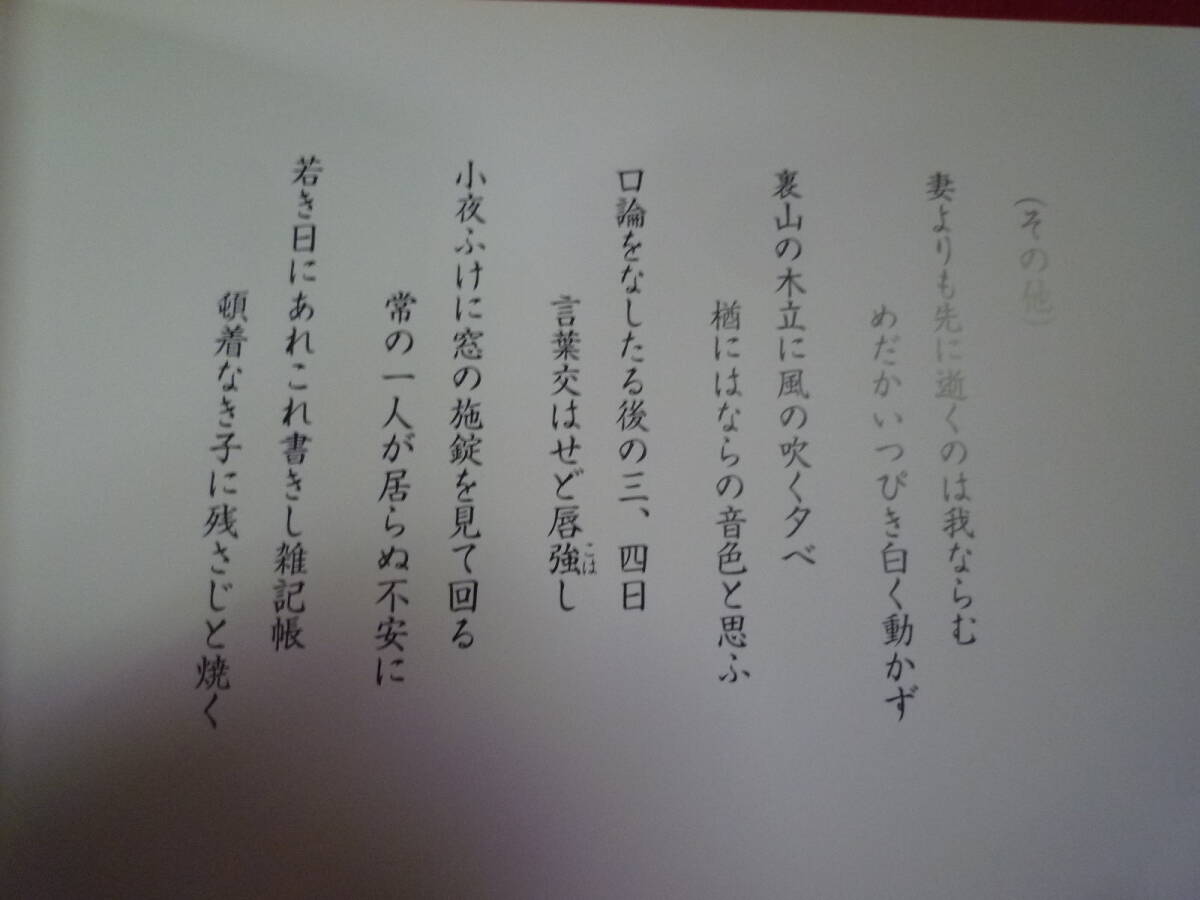 (その他)
妻よりも先に逝くのは我ならむ
めだかいっぴき白く動かず
裏山の木立に風の吹く夕べ
楢にはならの音色と思ふ
口論をなしたる後の三、四日
言葉交はせど唇強し
こは
小夜ふけに窓の施錠を見て回る
常の一人が居らぬ不安に
若き日にあれこれ書きし雑記帳
頓着なき子に残さじと焼く